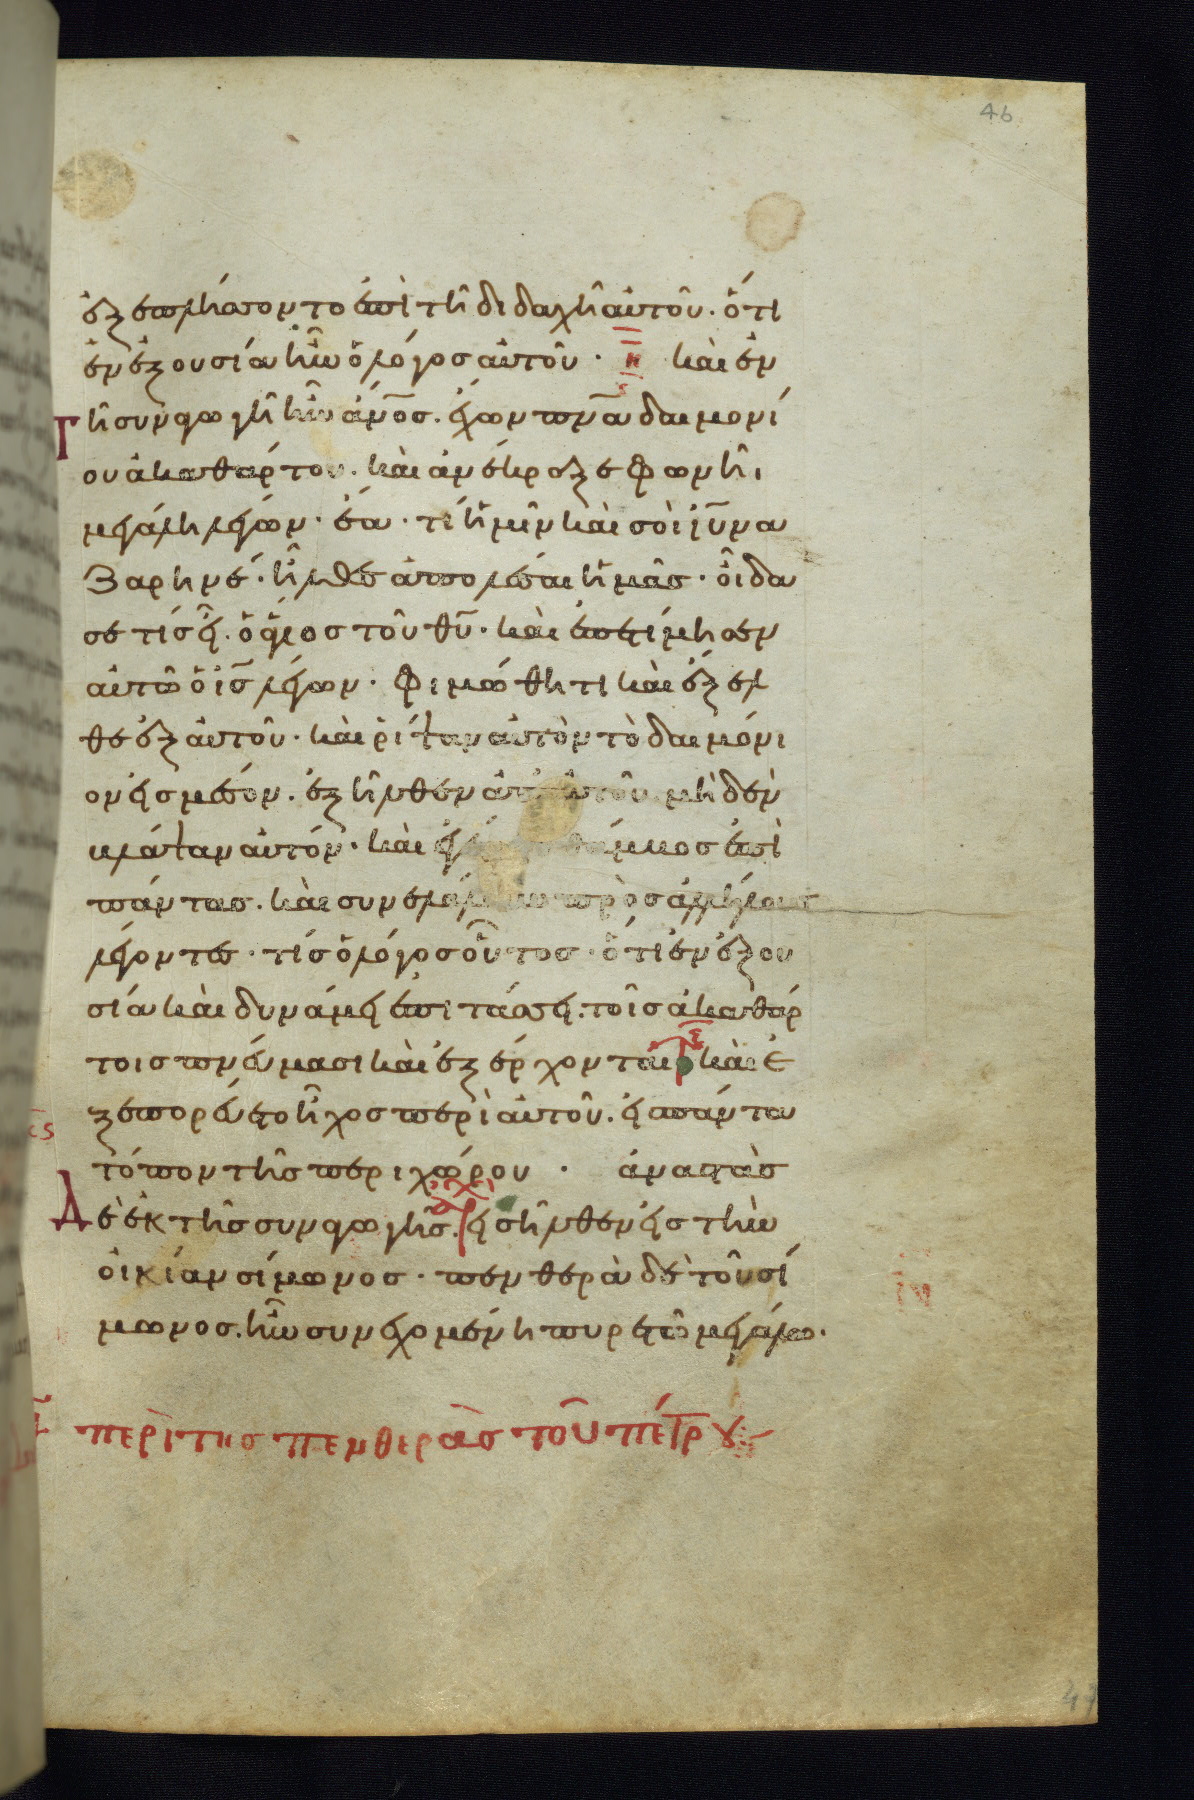 46
ἐξεπλήσσοντο ἐπὶ τῆ διδαχῆ αὐτοῦ· ὅτι
ἐν ἐξουσία ἦν ὁ λόγος αὐτοῦ· καὶ ἐν
Τῆ συναγωγῆ ἦν ἄν̅ος. ἔχων πν̅α δαιμονί
ου ἀκαθάρτου. καὶ ἀνέκραξε φωνῆι
μεγάλη λέγων· ἔα· τί ἡμῖν καὶ σοὶ ἰ̅υ να
ζαρηνέ· ἦλθες ἀπολέσαι ἡμᾶς· οἶδα
σε τίς εἶ. ὁ ἅγιος τοῦ θ̅υ· καὶ ἐπετίμησεν
αὐτῶ ὁ ι̅ς λέγων· φιμώθητι καὶ ἔξελ
θε ἐξ αὐτοῦ· καὶ ρίψαν αὐτὸν τὸ δαιμόνι
ον εἰς μέσον. ἐξῆλθεν ἀπ' αὐτοῦ μηδὲν
βλάψαν αὐτόν· καὶ θάμβος ἐπὶ
πάντας. καὶ συνελάλουν πρὸς ἀλλήλους
λέγοντες· τίς ὁ λόγος οὗτος· ὅτι ἐν ἐξου
σία καὶ δυνάμει ἐπιτάσσει. τοῖς ἀκαθάρ
τοις πνεύμασι καὶ ἐξέρχονται καὶ ἐ
ξεπορεύετο ἦχος περὶ αὐτοῦ. εἰς πάντα
τόπον τῆς περιχώρου · ἀναστὰς
Δὲ ἐκ τῆς συναγωγῆς. εἰσῆλθεν εἰς τὴν
οἰκίαν σίμωνος· πενθερὰ δὲ τοῦ σί
μωνος. ἦν συνεχομένη πυρετῶ μεγάλω·
περὶ της πενθερὰς τοῦ πέτρου